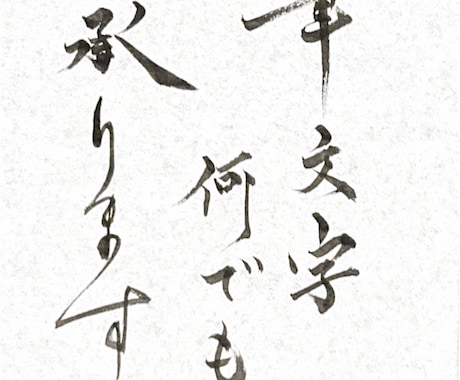 筆文字
何でも
承ります